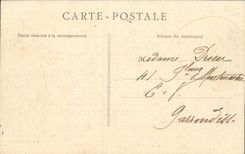 CARTE POSTALE
Partie réservée à la correspondance
Adresse du destinataire
Madame Dieu
41 Fbourg Montmartre
E. V.